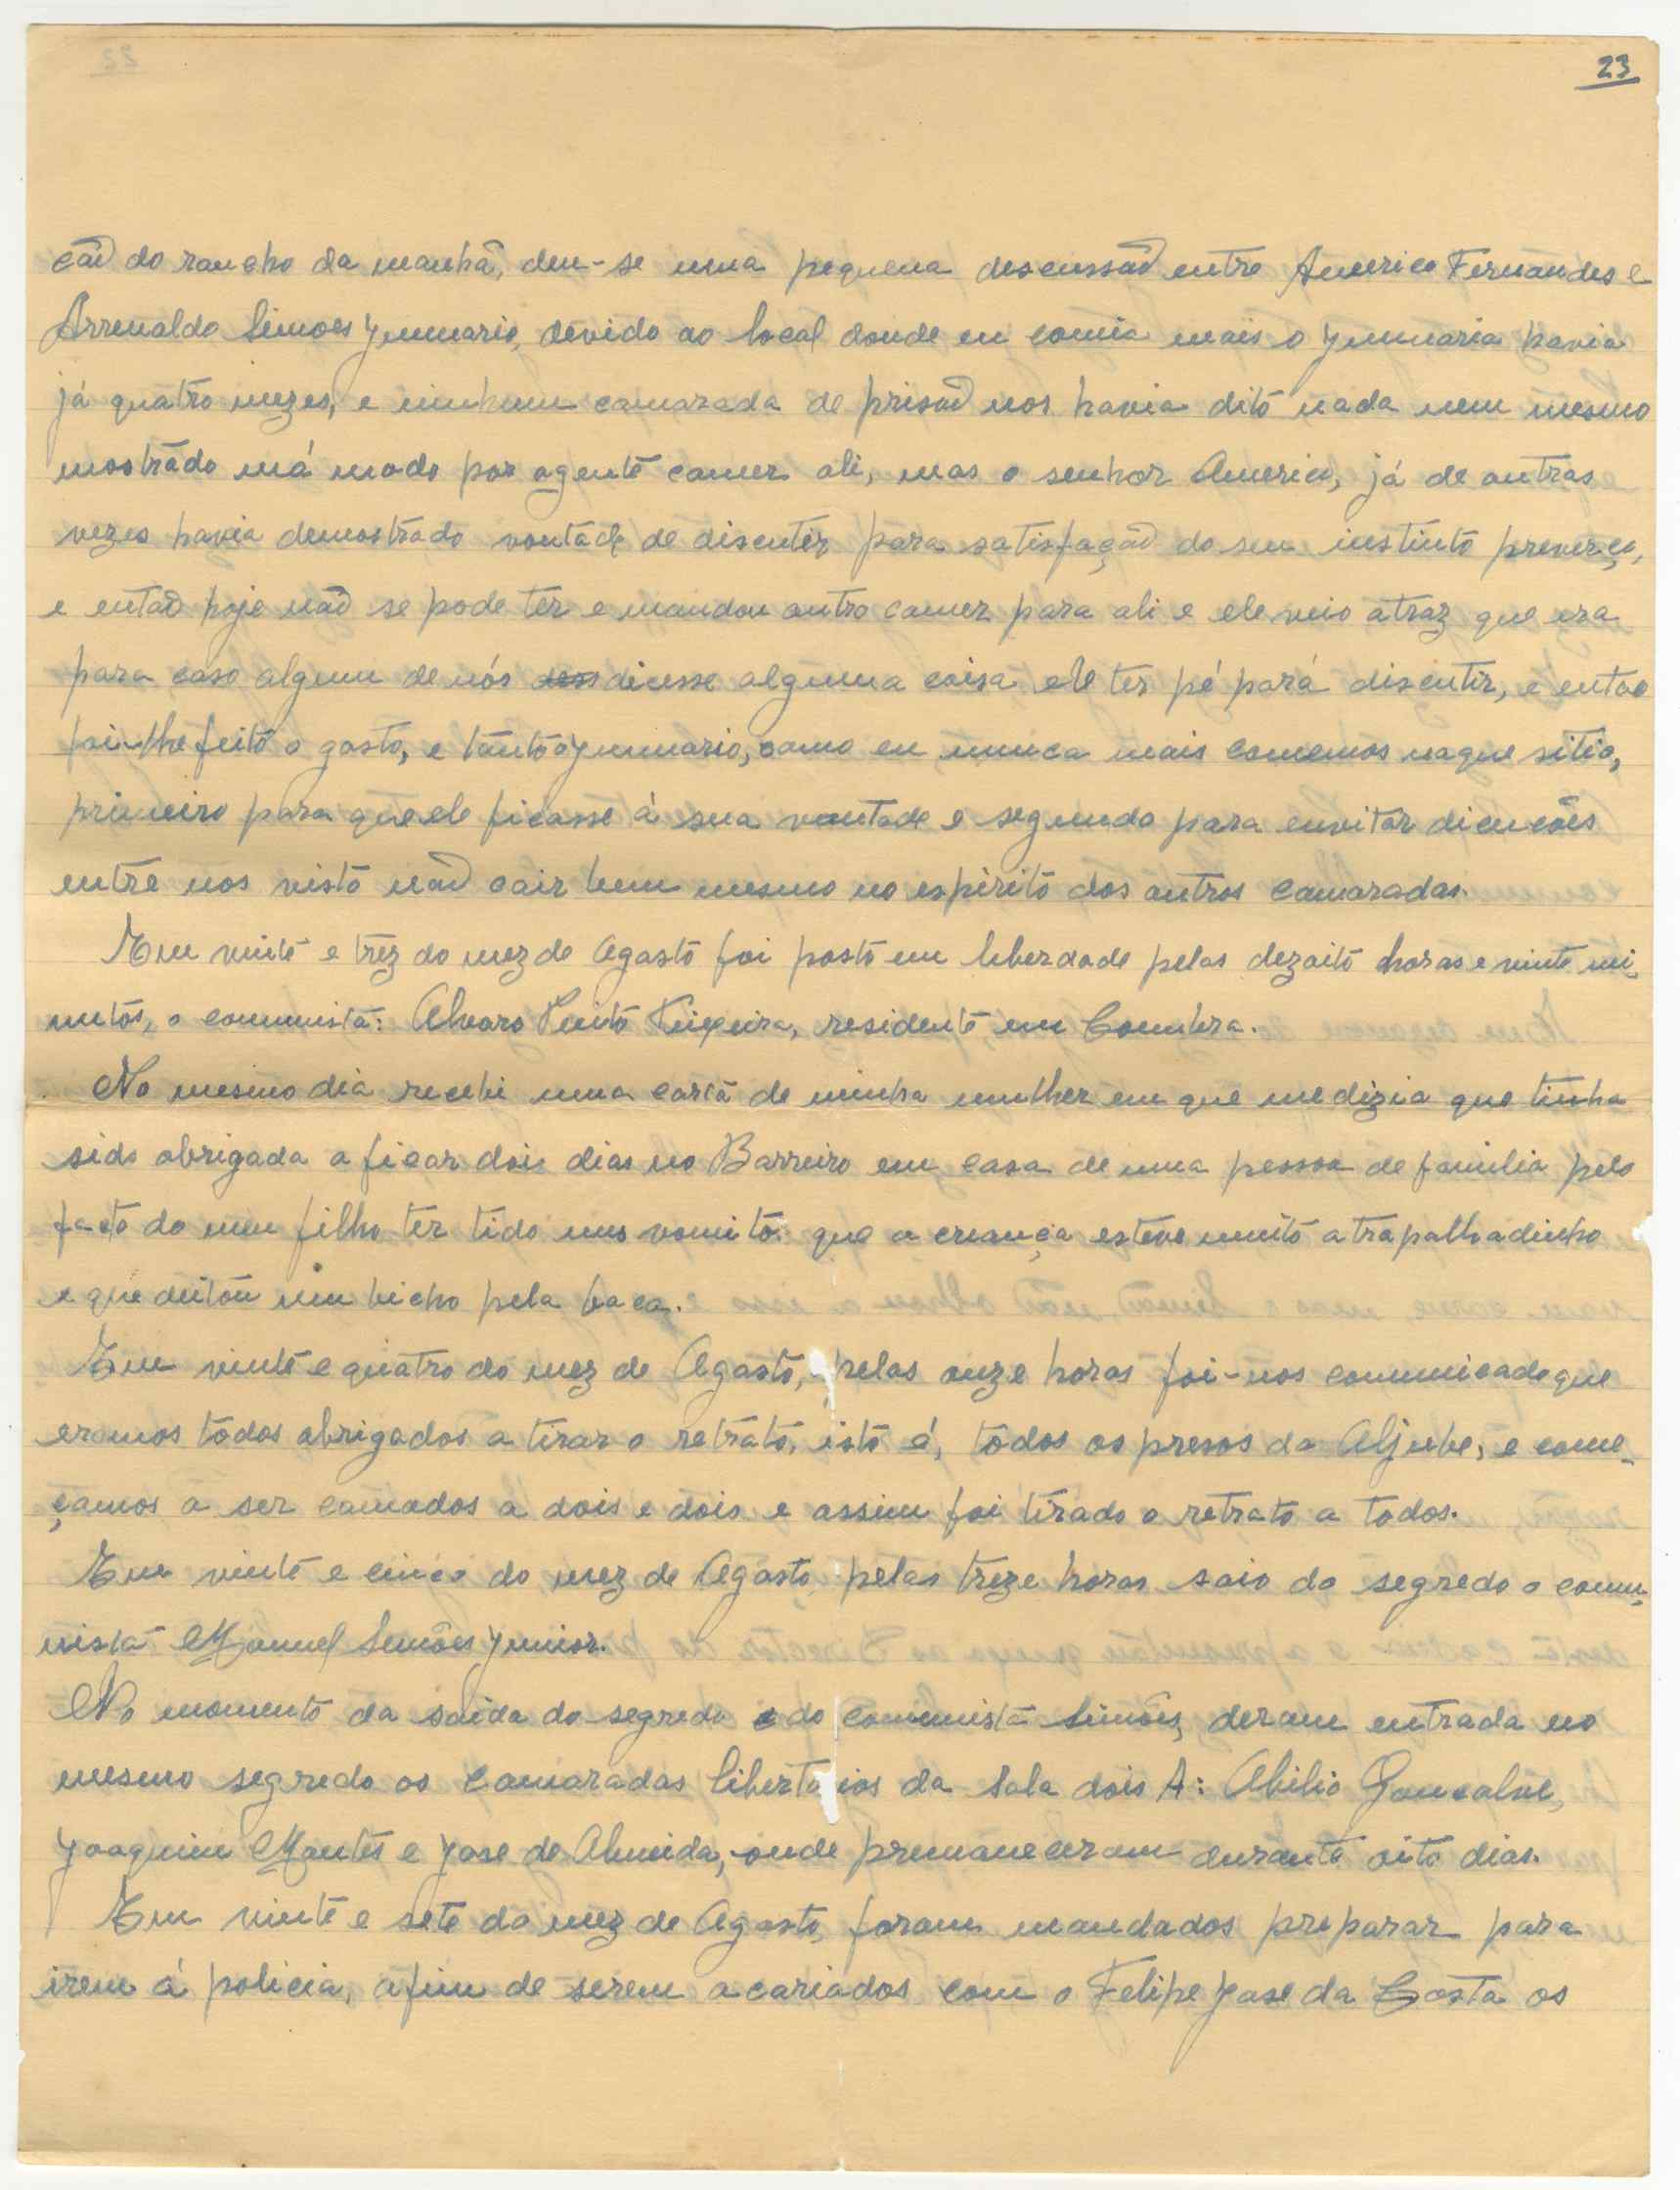 23
cão do rancho da manhã, deu-se uma pequena descussão entre Americo Fernandes e
Arrenaldo Simoes Jennuario, devido ao local donde eu comia mais o Jennuario havia
já quatro mezes, e ninhum camarada de prisão nos havia dito nada nem mesmo
mostrado má modo por agente comer ali, mas o senhor Americo, já de outras
vezes havia demostrado vontade de discutir para satisfação do seu instinto preverço,
e então hoje não se pode ter e mandou outro comer para ali e ele veio atraz que era
para caso algum de nós dicesse alguma coisa ele ter pé pará discutir, e entao
foi-lhe feito o gosto, e tanto o Jennuario, como eu nunca mais comemos naque sitio,
primeiro para que ele ficasse á sua vontade e segundo para envitar dicuções
entre nos visto não cair bem mesmo no espirito dos outros camaradas.
Em vinte e trez do mez de Agosto foi posto em liberdade pelas dezoito horas e vinte mi-
nutos, o comunista: Alvaro Pinto Teixeira, residente em Coimbra.
No mesmo dia recebi uma carta de minha mulher em que me dizia que tinha
sido obrigada a ficar dois dias no Barreiro em casa de uma pessoa de familia pelo
facto do meu filho ter tido uns vomitos que a creança esteve muito atrapalhadinho
e que deitou um bicho pela boca.
Em vinte e quatro do mez de Agosto, pelas onze horas foi-nos communicado que
eramos todos obrigados a tirar o retrato, isto é, todos os presos da Aljube, e come-
çamos a ser camados a dois e dois e assim foi tirado o retrato a todos.
Em vinte e cinco do mez de Agosto pelas treze horas saio do segredo o comu-
nista Manuel Simões Junior.
No momento da saida do segredo do communista Simões, deram entrada no
mesmo segredo os camaradas libertarios da Sala dois A: Abilio Gonçalve,
Joaquim Montes e Jose de Almeida, onde premaneceram durante oito dias.
Em vinte e sete do mez de Agosto, foram mandados preparar para
irem á policia, afim de serem acariados com o Felipe Jose da Costa os